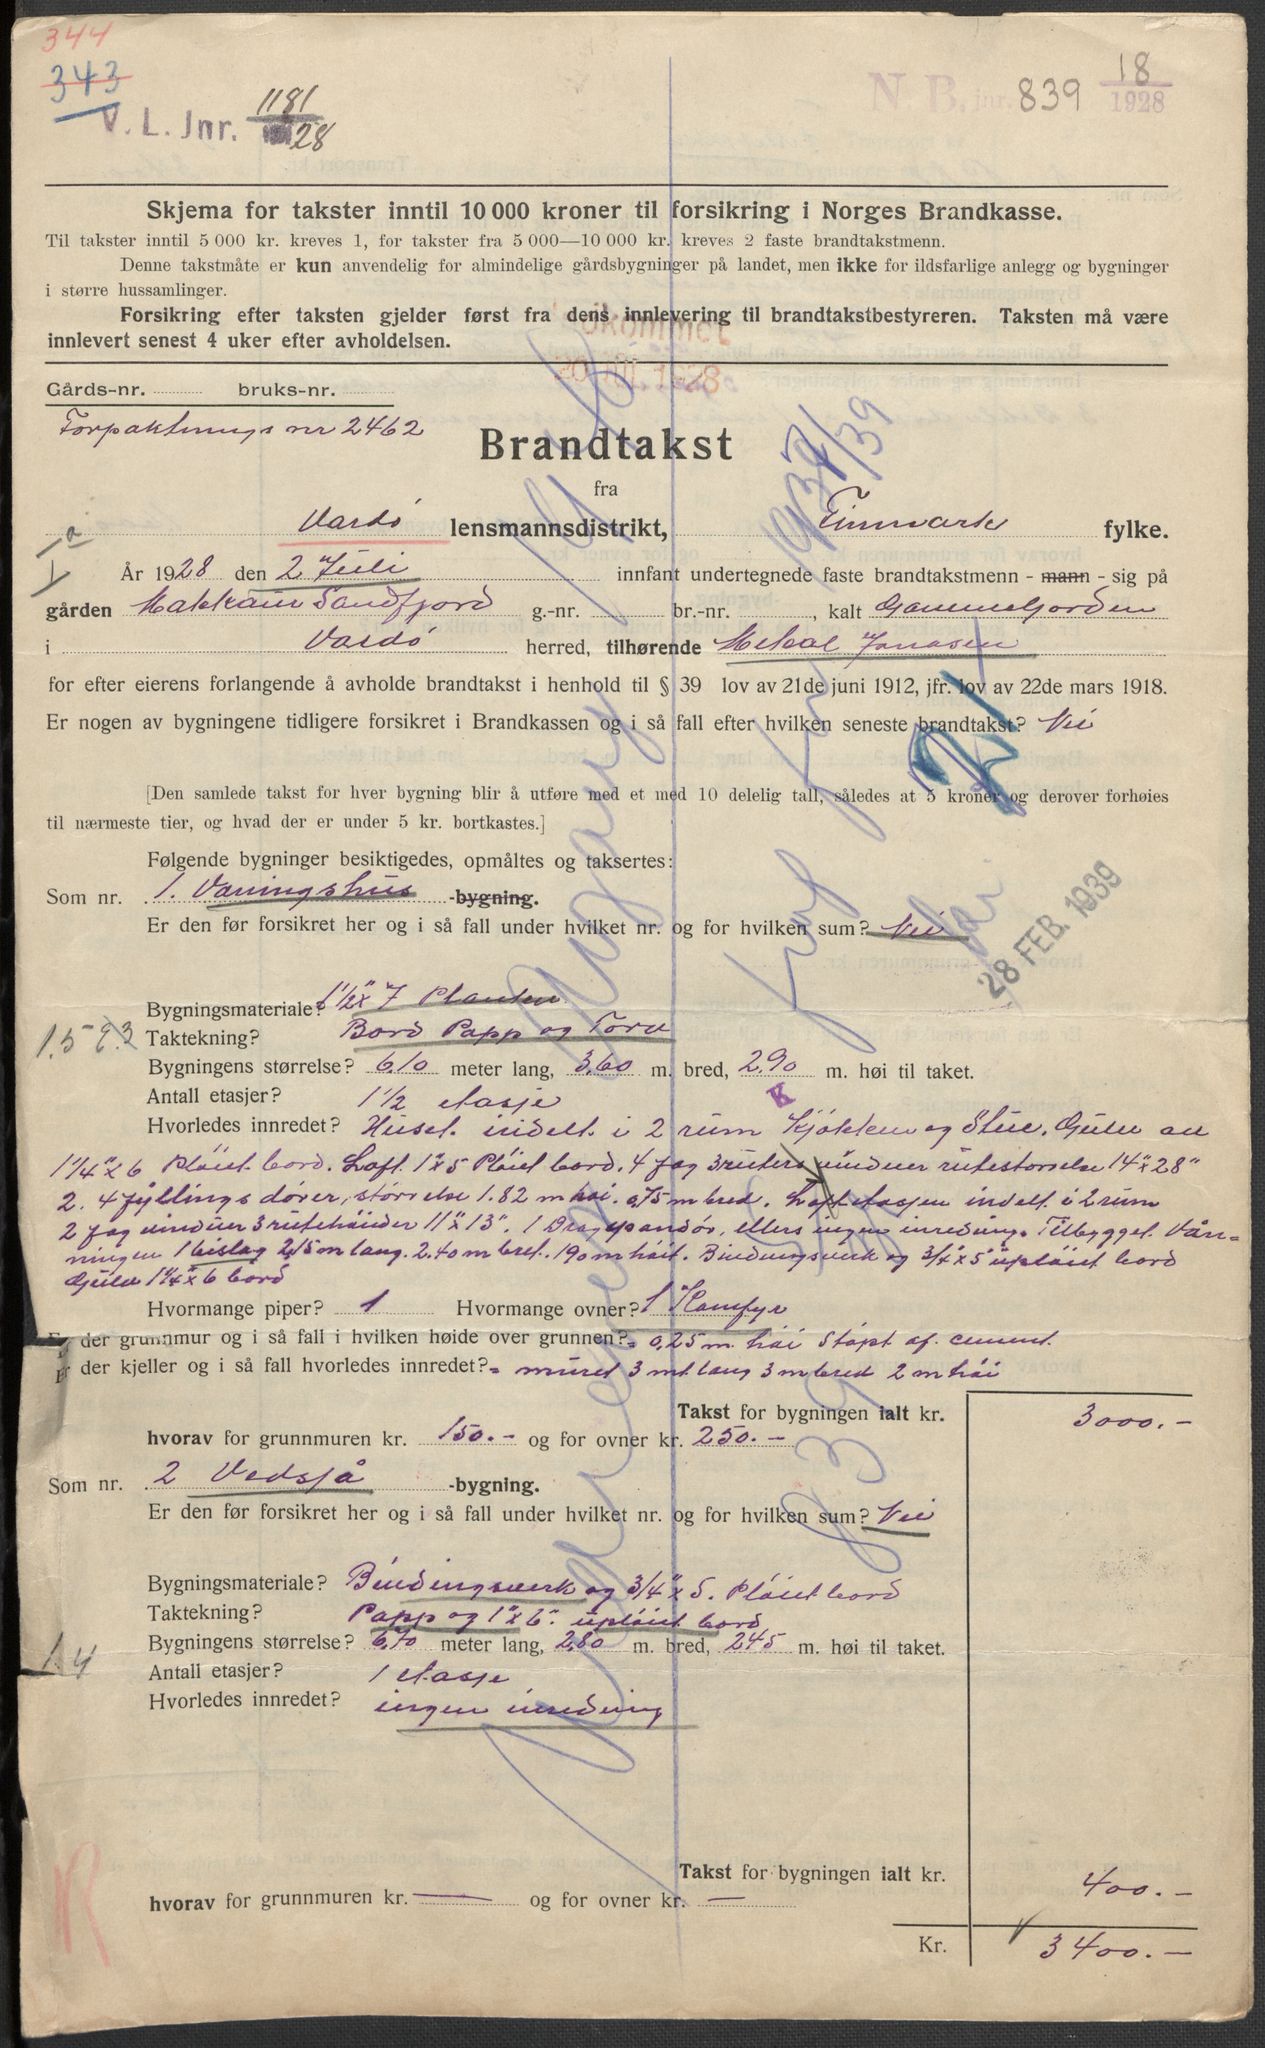 344
343
V. L. Jnr. 1181/28
N. B. jnr. 839 18/1928
Skjema for takster inntil 10 000 kroner til forsikring i Norges Brandkasse.
Til takster inntil 5 000 kr. kreves 1, for takster fra 5 000—10 000 kr. kreves 2 faste brandtakstmenn.
Denne takstmåte er kun anvendelig for almindelige gårdsbygninger på landet, men ikke for ildsfarlige anlegg og bygninger
i større hussamlinger.
Forsikring efter taksten gjelder først fra dens innlevering til brandtakstbestyreren. Taksten må være
innlevert senest 4 uker efter avholdelsen.
Gårds-nr. bruks-nr.
Forpaktnings nr 2462
Brandtakst
fra
Vardø lensmannsdistrikt, Finmark fylke.
År 1928 den 2 Juli innfant undertegnede faste brandtakstmenn - mann - sig på
gården Makkaur Sandfjord g.-nr. br.-nr. , kalt Gammelgorden
i Vardø herred, tilhørende Mekal Jonasen
for efter eierens forlangende å avholde brandtakst i henhold til § 39 lov av 21de juni 1912, jfr. lov av 22de mars 1918.
Er nogen av bygningene tidligere forsikret i Brandkassen og i så fall efter hvilken seneste brandtakst? Nei
[Den samlede takst for hver bygning blir å utføre med et med 10 delelig tall, således at 5 kroner og derover forhøies
til nærmeste tier, og hvad der er under 5 kr. bortkastes.]
Følgende bygninger besiktigedes, opmåltes og taksertes:
Som nr. 1. Vaningshus -bygning.
Er den før forsikret her og i så fall under hvilket nr. og for hvilken sum? Nei
28 FEB. 1939
Bygningsmateriale? 1 1/2" x 7 Planker
Taktekning? Bord Papp og Torv
Bygningens størrelse? 6.10 meter lang, 3.60 m. bred, 2.90 m. høi til taket.
Antall etasjer? 1 1/2 etasje
Hvorledes innredet? Huset indelt i 2 rum Kjøkken og Stue. Gulv av
1 1/4" x 6 Pløiet bord. Loft 1" x 5 Pløiet bord. 4 fag 3 ruters vinduer rutestørrelse 14" x 28"
2. 4 fyllings dører, størrelse 1.82 m høi. 0,75 m bred. Loftetasjen indelt i 2 rum
2 fag vinduer 3 rutehøider 11" x 13". 1 , ellers ingen inredning. Tilbygget Vån-
ningen 1 bislag 2,15 m lang. 2.40 m bret. 1.90 m høit. Bindingsverk og 3/4" x 5" upløiet bord
Gulv 1 1/4" x 6 bord
Hvormange piper? 1 Hvormange ovner? 1 Komfyr
Er der grunnmur og i så fall i hvilken høide over grunnen? = 0,25 m høi støpt af cement.
Er der kjeller og i så fall hvorledes innredet? = muret 3 mt lang 3 m bred 2 m høi
Takst for bygningen ialt kr. 3000.-
hvorav for grunnmuren kr. 150.- og for ovner kr. 250.-
Som nr. 2 Vedsjå -bygning.
Er den før forsikret her og i så fall under hvilket nr. og for hvilken sum? Nei
Bygningsmateriale? Bindingsverk og 3/4" x 5. Pløiet bord
Taktekning? Papp og 1" x 6". upløiet bord
Bygningens størrelse? 6.70 meter lang, 2.80 m. bred, 2.45 m. høi til taket.
1.4
Antall etasjer? 1 etasje
Hvorledes innredet? ingen inredning
Takst for bygningen ialt kr. 400.-
hvorav for grunnmuren kr. — og for ovner kr. —
Kr. 3400.-
R